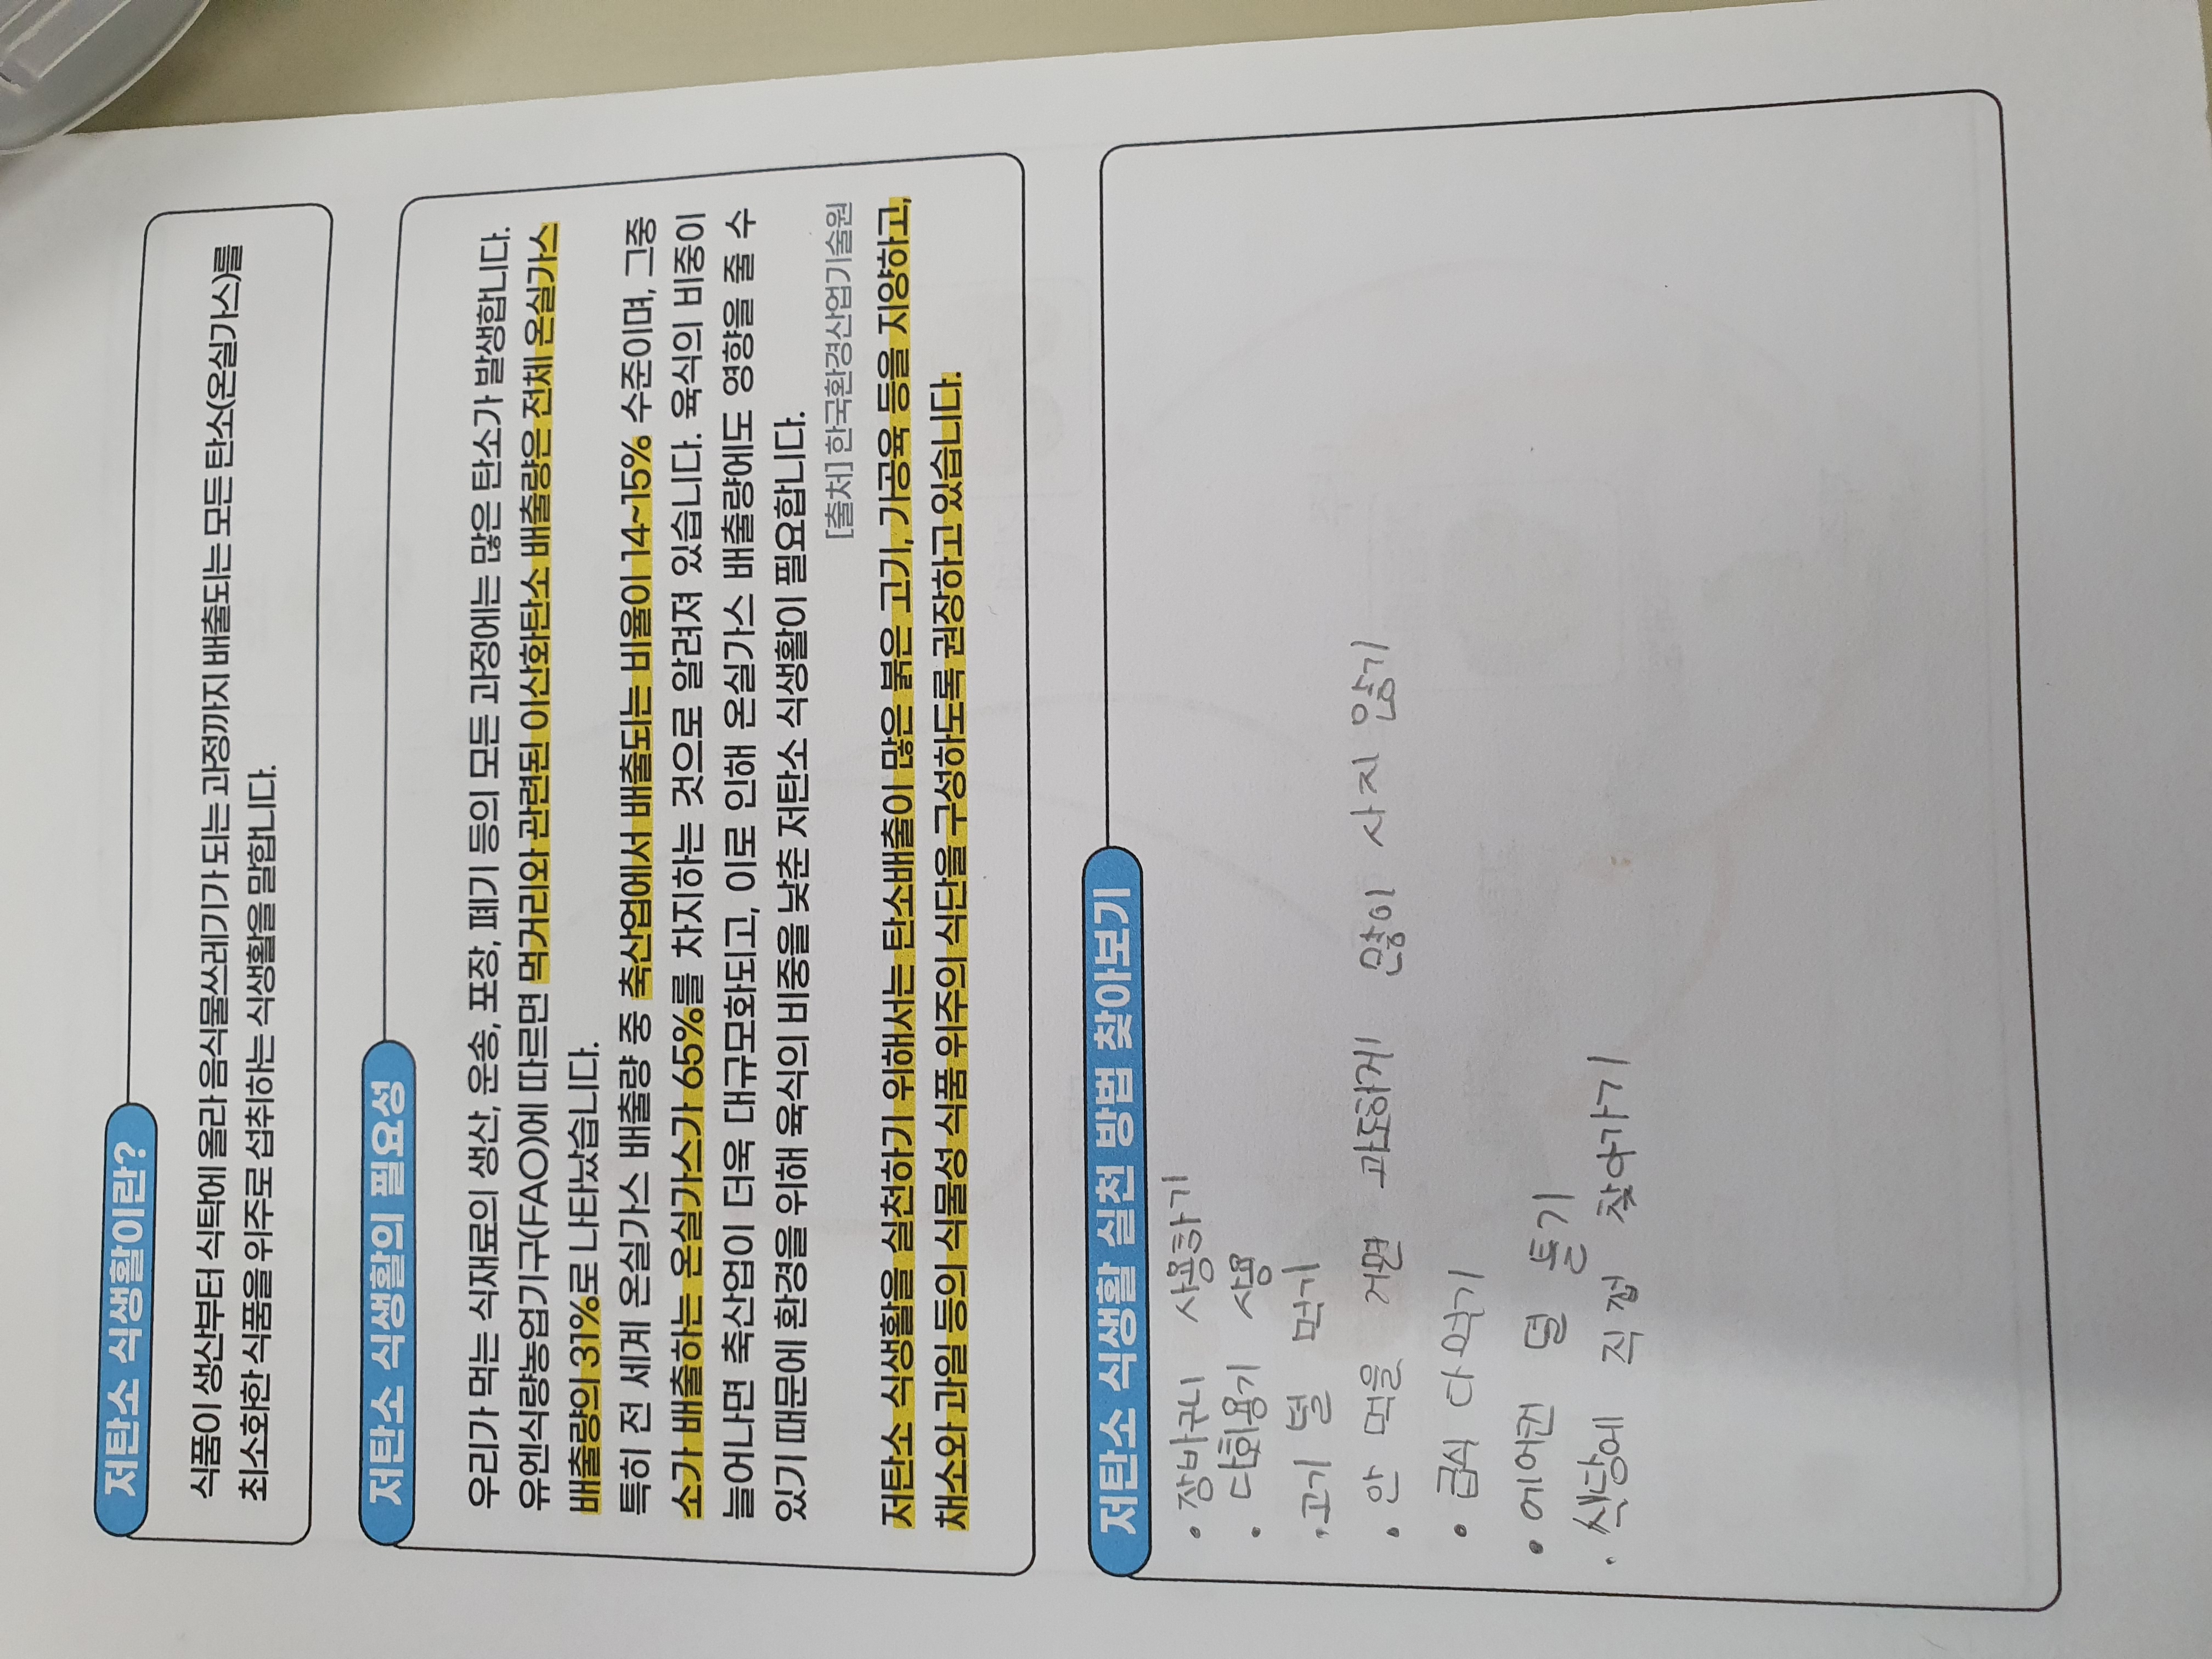 저탄소 식생활이란?
식품이 생산부터 식탁에 올라 음식물쓰레기가 되는 과정까지 배출되는 모든 탄소(온실가스)를
최소화한 식품을 위주로 섭취하는 식생활을 말합니다.
저탄소 식생활의 필요성
우리가 먹는 식재료의 생산, 운송, 포장, 폐기 등의 모든 과정에는 많은 탄소가 발생합니다.
유엔식량농업기구(FAO)에 따르면 먹거리와 관련된 이산화탄소 배출량은 전체 온실가스
배출량의 31%로 나타났습니다.
특히 전 세계 온실가스 배출량 중 축산업에서 배출되는 비율이 14~15% 수준이며, 그중
소가 배출하는 온실가스가 65%를 차지하는 것으로 알려져 있습니다. 육식의 비중이
늘어나면 축산업이 더욱 대규모화되고, 이로 인해 온실가스 배출량에도 영향을 줄 수
있기 때문에 환경을 위해 육식의 비중을 낮춘 저탄소 식생활이 필요합니다.
[출처] 한국환경산업기술원
저탄소 식생활을 실천하기 위해서는 탄소배출이 많은 붉은 고기, 가공육 등을 지양하고,
채소와 과일 등의 식물성 식품 위주의 식단을 구성하도록 권장하고 있습니다.
저탄소 식생활 실천 방법 찾아보기
• 장바구니 사용하기
• 다회용기 사용
• 고기 덜 먹기
• 안 먹을 거면 과도하게 많이 사지 않기
• 급식 다 먹기
• 에어컨 덜 틀기
• 식당에 직접 찾아가기